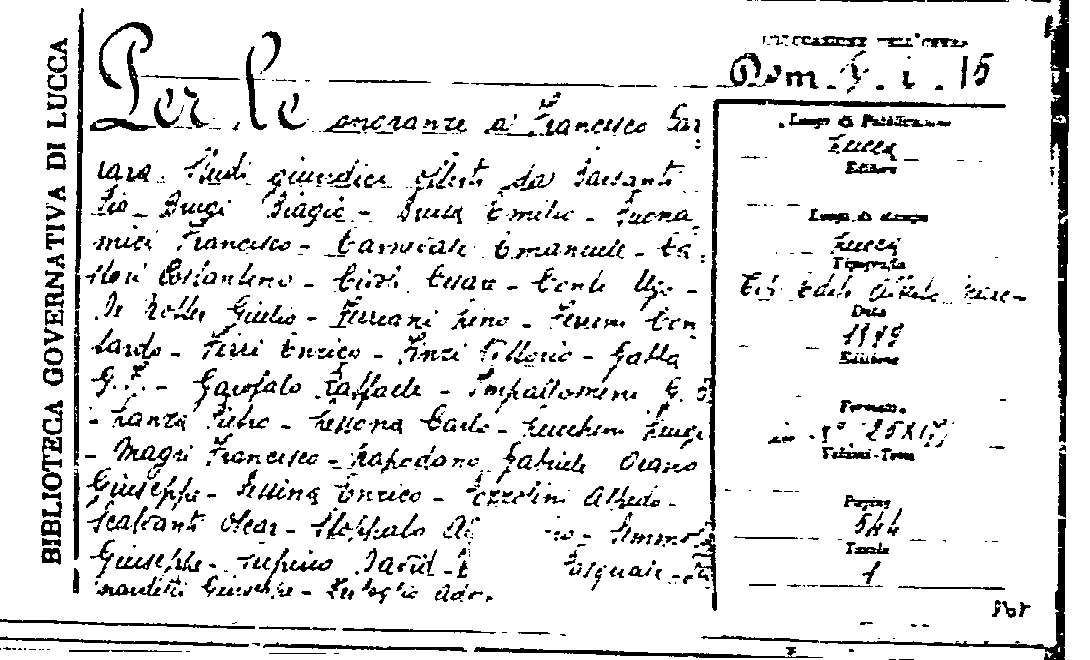 BIBLIOTECA GOVERNATIVA DI LUCCA
COLLOCAZIONE DELL'OPERA
Per le onoranze a Francesco Car
Dom. . i . 15
rara. Studi giuridici offerti da Barsanti
Pio - Brugi Biagio - Brusa Emilio - Buona
mici Francesco - Carnevale Emanuele - Ca
stori Costantino - Civoli Cesare - Conti Ugo -
Giulio - Ferriani Lino - Ferrini Con
tardo - Ferri Enrico - Finzi Vittorio - Gabba
G. F. - Garofalo Raffaele - Impallomeni G. B
- Lanza Pietro - Lessona Carlo - Lucchini Luigi
- Magri Francesco - Napodano Gabriele Orano
Giuseppe - Pessina Enrico - Pozzolini Alfredo -
Scalvanti Oscar - Stoppato
Giuseppe - Supino David - Pasquale -
Giuseppe - Ado.
Luogo di Pubblicazione
Lucca
Editore
Luogo di stampa
Lucca
Tipografia
Tip. Edit. Alberto
Data
1899
Edizione
Formato
in 8° 25 X 17
Volumi - Tomi
Pagine
544
Tavole
1